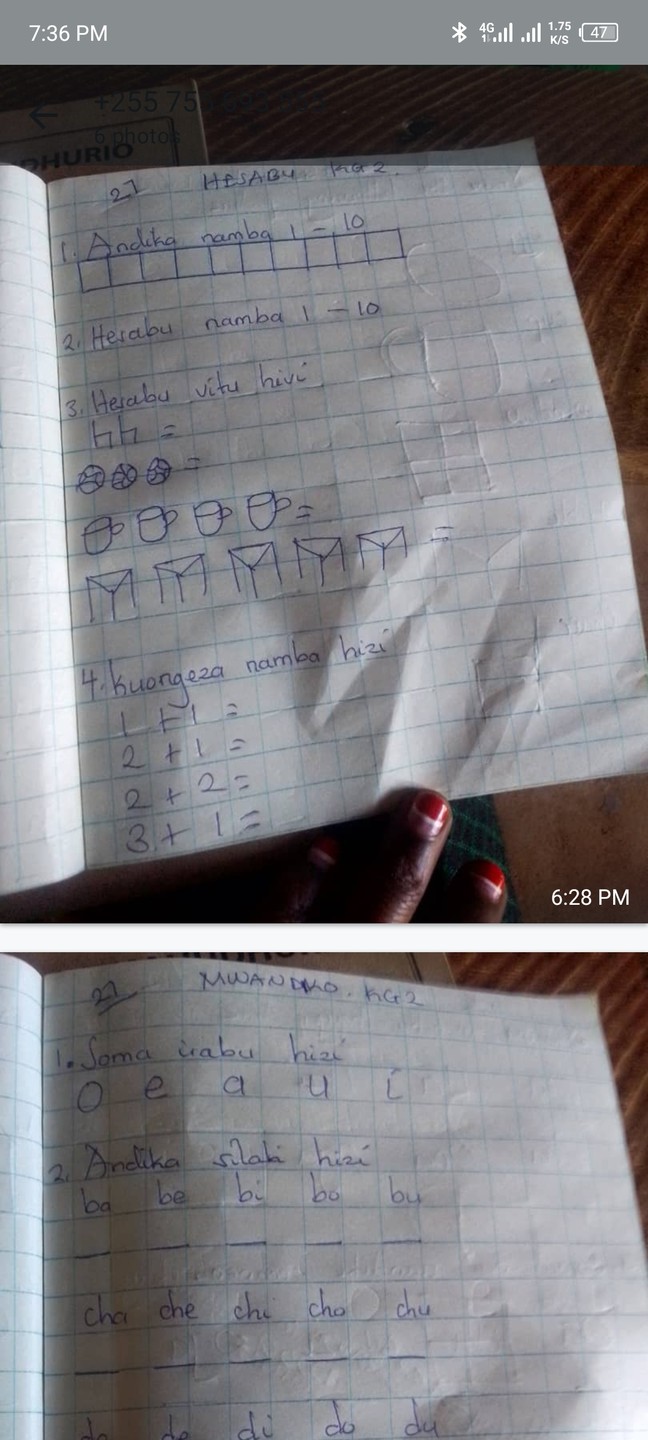 7:36 PM
4G 1.75 K/S 47
6 photos
DHURIO
27 HESABU KG2.
1. Andika namba 1 - 10
2. Hesabu namba 1 - 10
3. Hesabu vitu hivi
=
=
=
=
4. Kuongeza namba hizi
1 + 1 =
2 + 1 =
2 + 2 =
3 + 1 =
6:28 PM
27 MWANDIKO. KG2
1. Soma irabu hizi
o e a u i
2. Andika silabi hizi
ba be bi bo bu
cha che chi cho chu
da de di do du